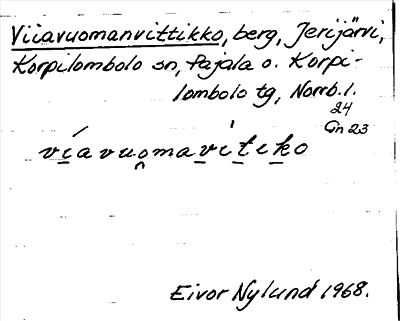 Viiavuomanvittikko, berg, Jerijärvi,
Korpilombolo sn, Pajala o. Korpi-
lombolo tg, Norrb. l.
24
Gn 23
víavuomavˈitiko
Eivor Nylund 1968.